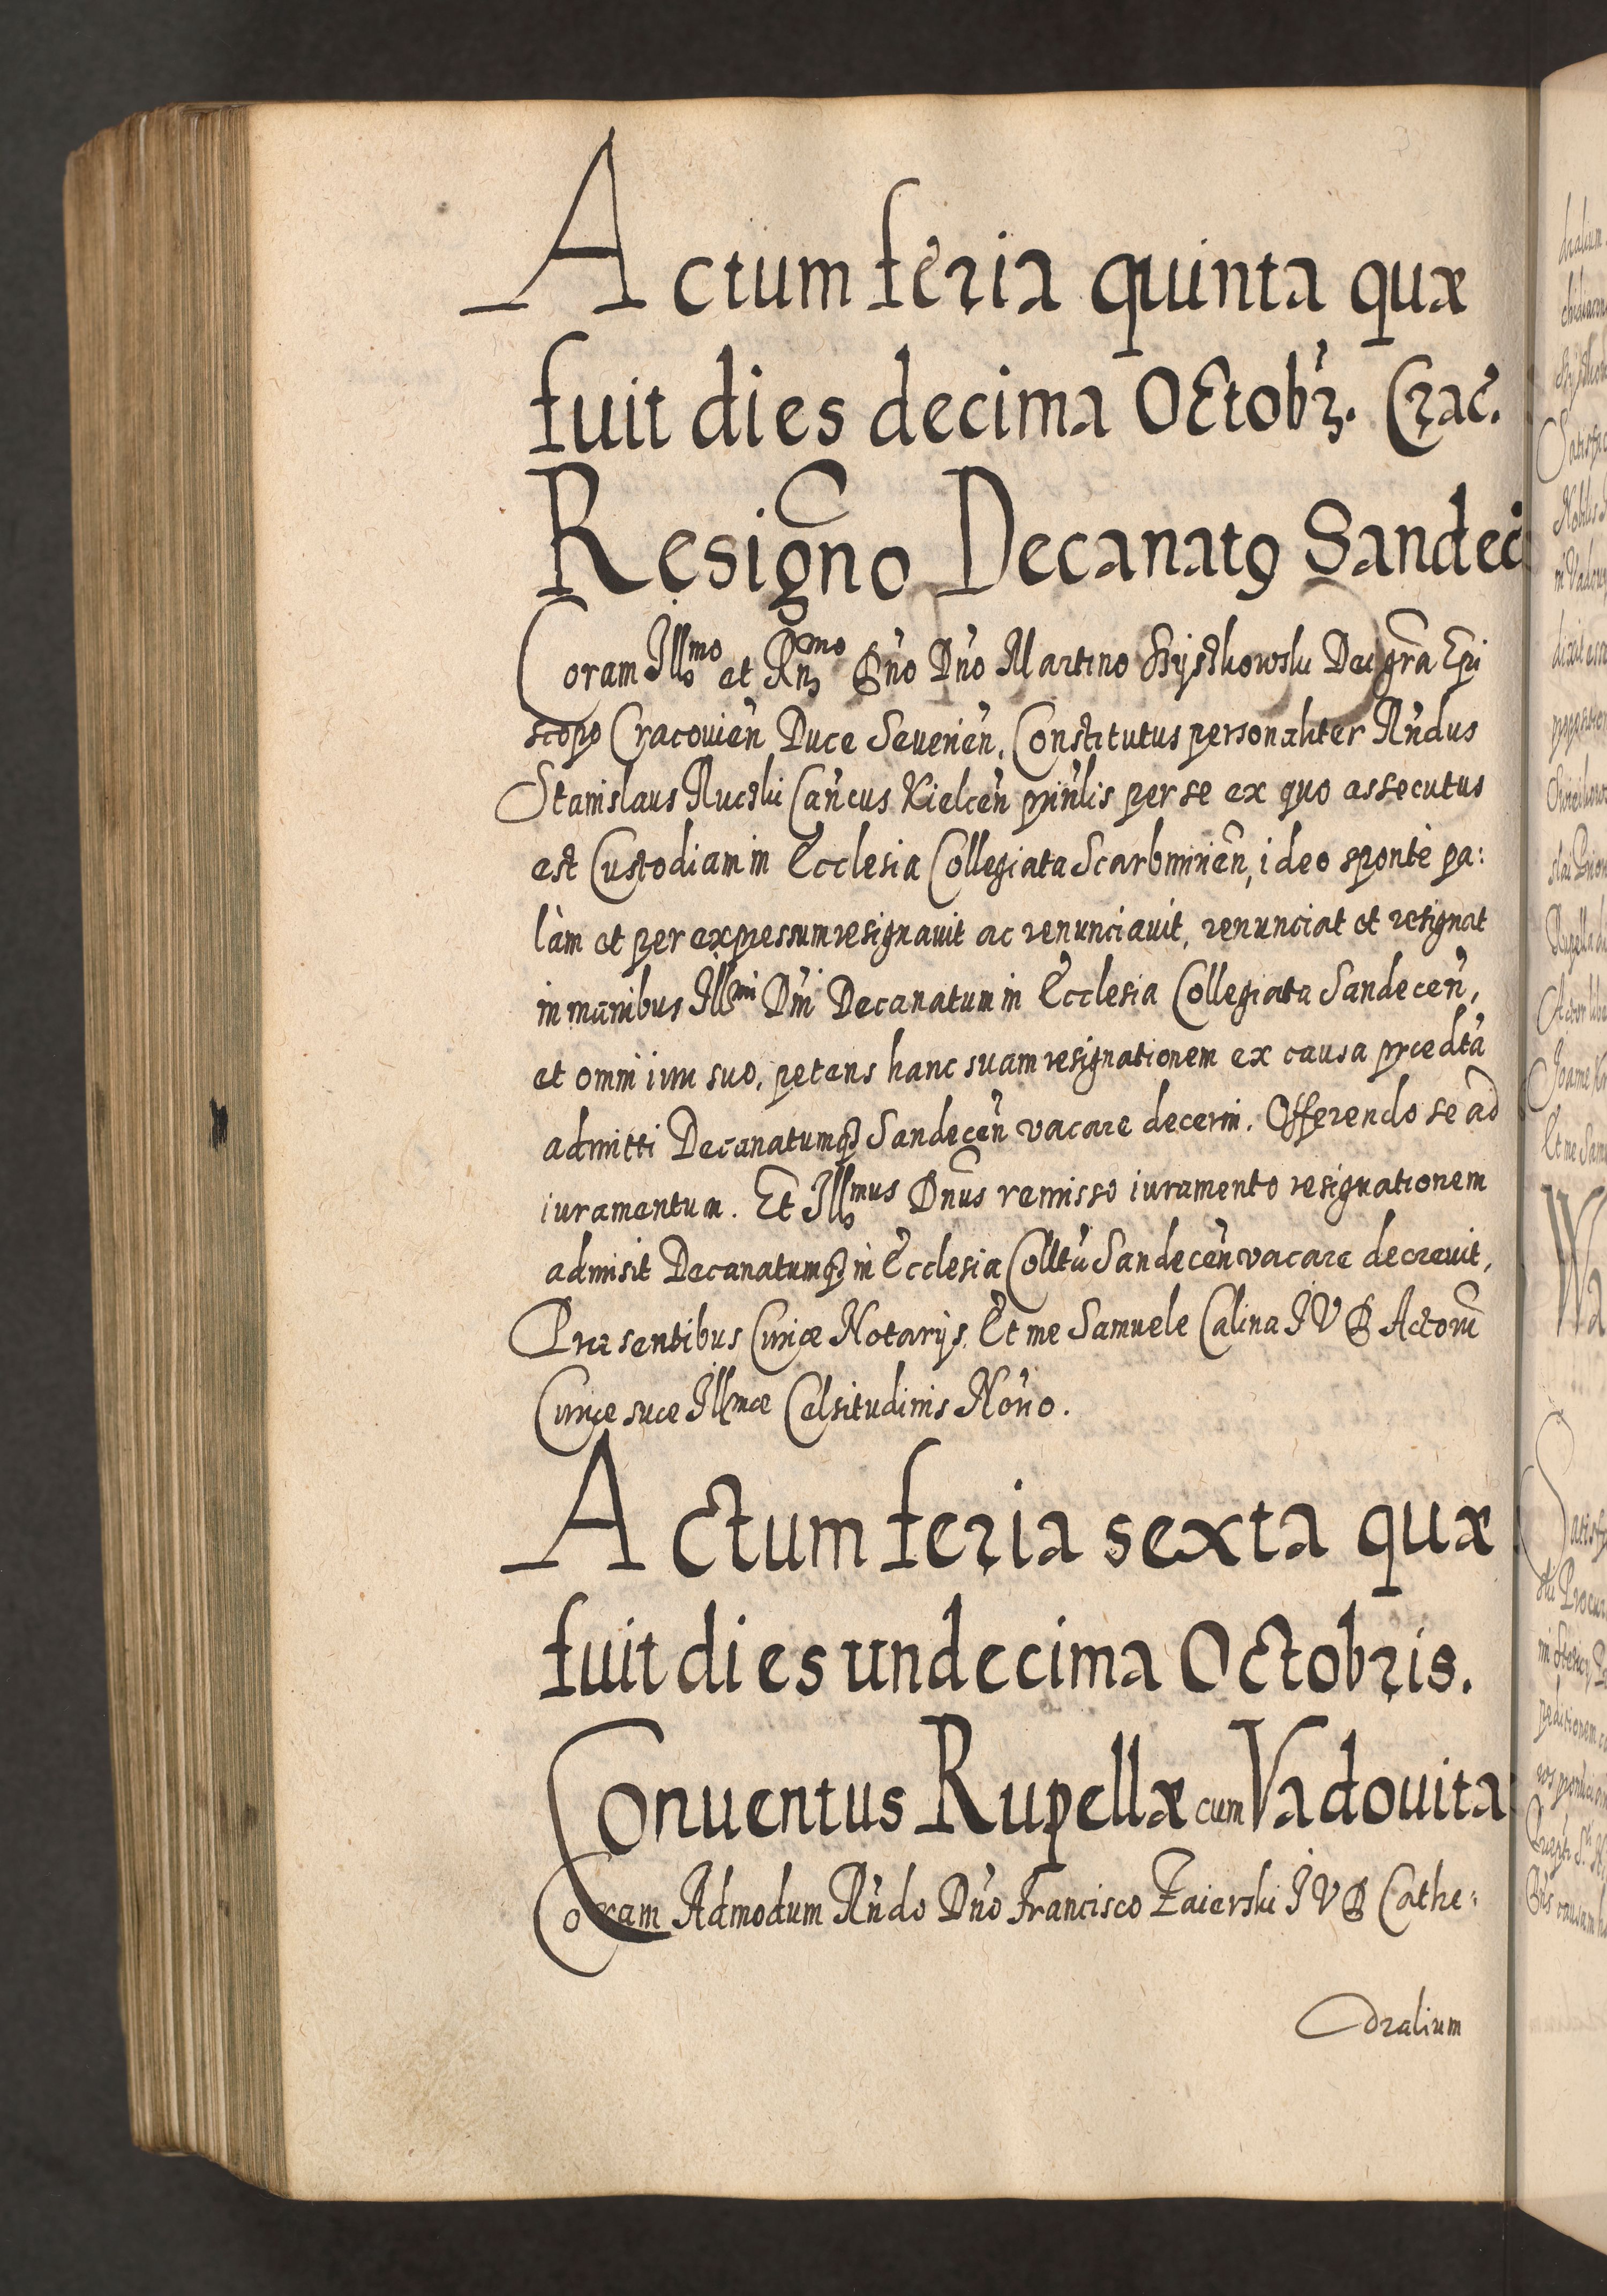 Actum feria quinta quæ
fuit dies decima Octobr. Crac.
Resigno Decanatꝯ Sandeci
Coram Illmo et Rnmo Dno Dno Martino Szyszkowski Dei gra Epi
scopo Cracovien Duce Severien. Constitutus personaliter Rndus
Stanislaus Rucski Cancus Kielcen prinlis per se ex quo assecutus
est Custodiam in Ecclesia Collegiata Scarbmirien, ideo spontè pa:
làm et per expressum resignavit ac renunciavit, renunciat et resignat
in manibus Illmi Dni Decanatum in Ecclesia Collegiata Sandecen,
et omni iuri suo, petens hanc suam resignationem ex causa prædta
admitti Decanatumqꝫ Sandecen vacare decerni. Offerendo se ad
iuramentum. Et Illmus Dnus remisso iuramento resignationem
admisit Decanatumqꝫ in Ecclesia Colltá Sandecen vacare decrevit,
Præsentibus Curiæ Notarijs. Et me Samuele Calina IVD Actorum
Curiæ suæ Illmæ Celsitudinis Notrio.
Actum feria sexta quæ
fuit dies undecima Octobris.
Conventus Rupellæ cum Vadovita
Coram Admodum Rndo Dno Francisco Zaierski IVD Cathe:
dralium